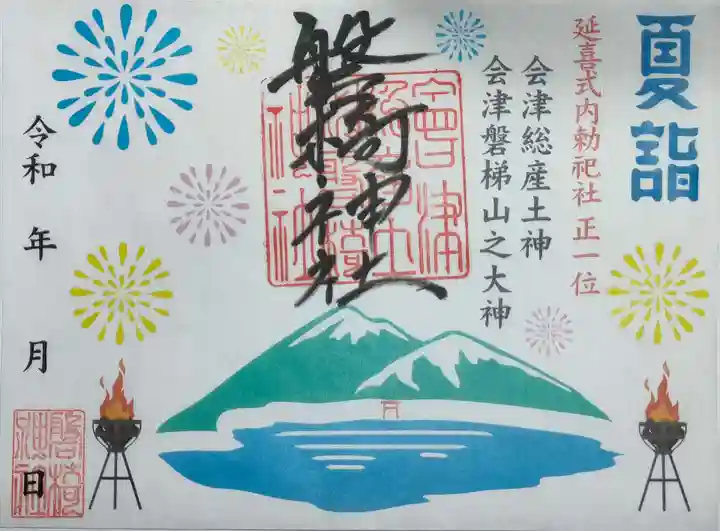 夏詣
延喜式内勅祀社 正一位
会津総産土神
会津磐梯山之大神
磐椅神社
令和 年 月 日
磐椅神社